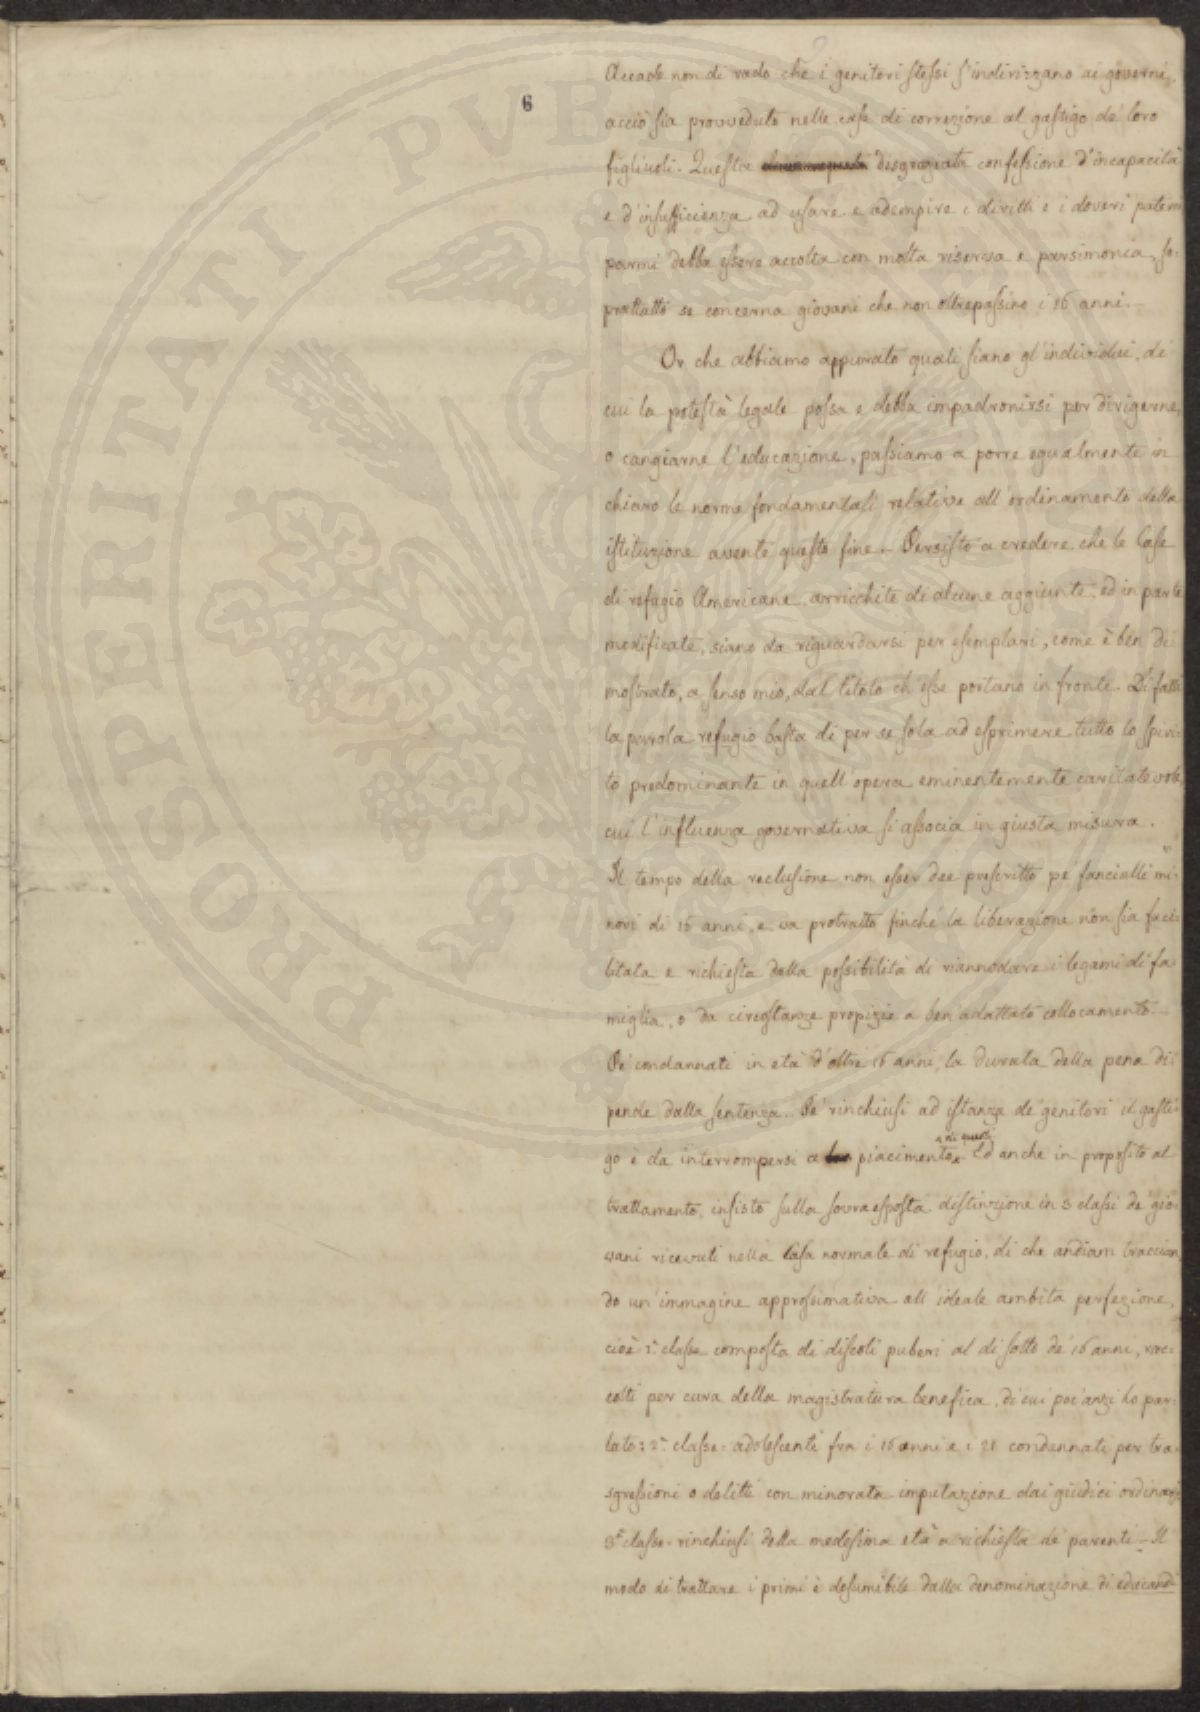 6
Accade non di rado che i genitori stessi s'indirizzano ai governi,
acciò sia provveduto nelle case di correzione al gastigo de' loro
figliuoli. Questa disgraziata confessione d'incapacità
e d'insufficienza ad usare e adempire i diritti e i doveri paterni
parmi debba essere accolta con molta riserva e parsimonia, so-
prattutto se concerna giovani che non oltrepassino i 16 anni.—
Or che abbiamo appurato quali siano gl'individui, di
cui la potestà legale possa e debba impadronirsi per dirigerne,
o cangiarne l'educazione, passiamo a porre egualmente in
chiaro le norme fondamentali relative all'ordinamento della
istituzione avente questo fine.— Persisto a credere che le Case
di refugio Americane, arricchite di alcune aggiunte, ed in parte
modificate, siano da riguardarsi per esemplari, come è ben di
mostrato, a senso mio, dal titolo ch'esse portano in fronte. Di fatti
la parola refugio basta di per se sola ad esprimere tutto lo spiri-
to predominante in quell'opera eminentemente caritatevole,
cui l'influenza governativa si associa in giusta misura.
Il tempo della reclusione non esser dee prescritto pe' fanciulli mi-
nori di 16 anni, e va protratto finchè la liberazione non sia faci-
litata e richiesta dalla possibilità di riannodare i legami di fa-
miglia, o da circostanze propizie a ben adattato collocamento.—
Pe' condannati in età d'oltre 16 anni, la durata della pena di-
pende dalla sentenza. Pe' rinchiusi ad istanza de' genitori il gasti-
go è da interrompersi a piacimento di questi. Ed anche in proposito al
trattamento, insisto sulla sovraesposta distinzione in 3 classi de' gio-
vani ricevuti nella Casa normale di refugio, di che andiam traccian-
do un'immagine approssimativa all'ideale ambita perfezione,
cioè 1.ª classe composta di discoli puberi al di sotto de' 16 anni, rac-
colti per cura della magistratura benefica, di cui poc'anzi ho par-
lato: 2.ª classe: adolescenti fra i 16 anni e i 21 condannati per tra-
sgressioni o delitti con minorata imputazione dai giudici ordinarj
3.ª classe: rinchiusi della medesima età a richiesta de' parenti.— Il
modo di trattare i primi è desumibile dalla denominazione di educandi
PROSPERITATI PVBLICAE